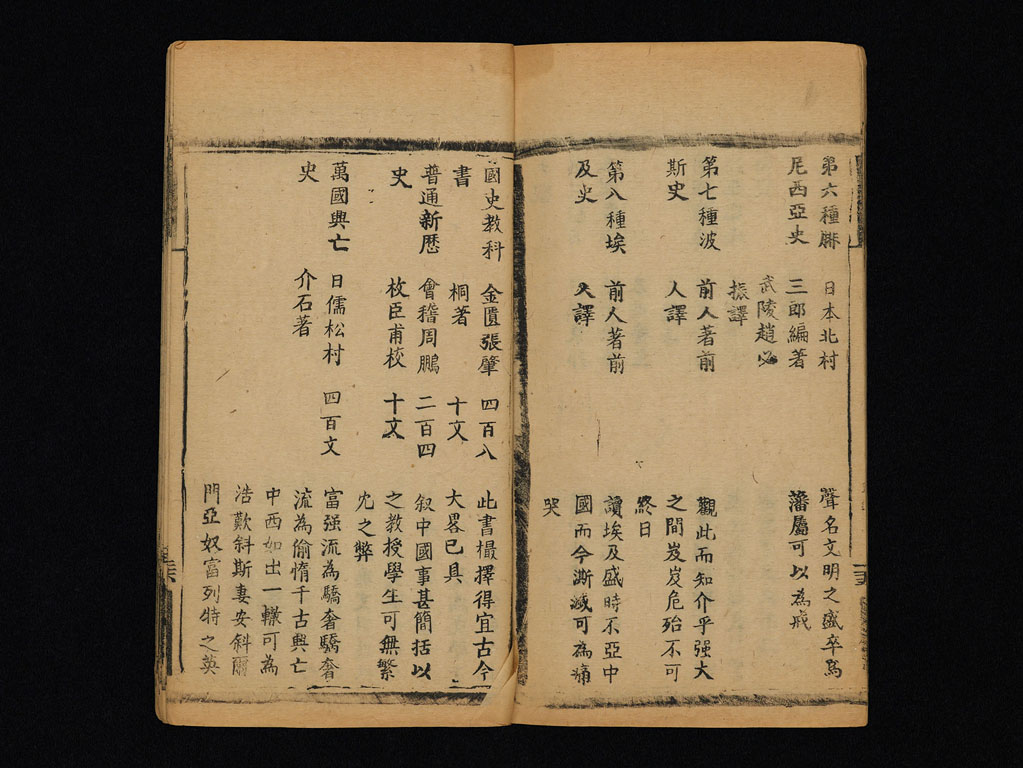 第六種腓　日本北村　聲名文明之盛卒為
尼西亞史　三郎編著　藩屬可以為戒
武陵趙必
振譯
第七種波　前人著前　觀此而知介乎强大
斯史　人譯　之間岌岌危殆不可
終日
第八種埃　前人著前　讀埃及盛時不亞中
及史　人譯　國而今澌滅可為痛
哭
國史教科　金匱張肇　四百八　此書撮擇得宜古今
書　桐著　十文　大畧已具
普通新歷　會稽周鵬　二百四　叙中國事甚簡括以
史　枚臣甫校　十文　之教授學生可無繁
冗之弊
萬國興亡　日儒松村　四百文　富强流為驕奢驕奢
史　介石著　流為偷惰千古興亡
中西如出一轍可為
浩歎斜斯妻安斜爾
門亞奴富列特之英